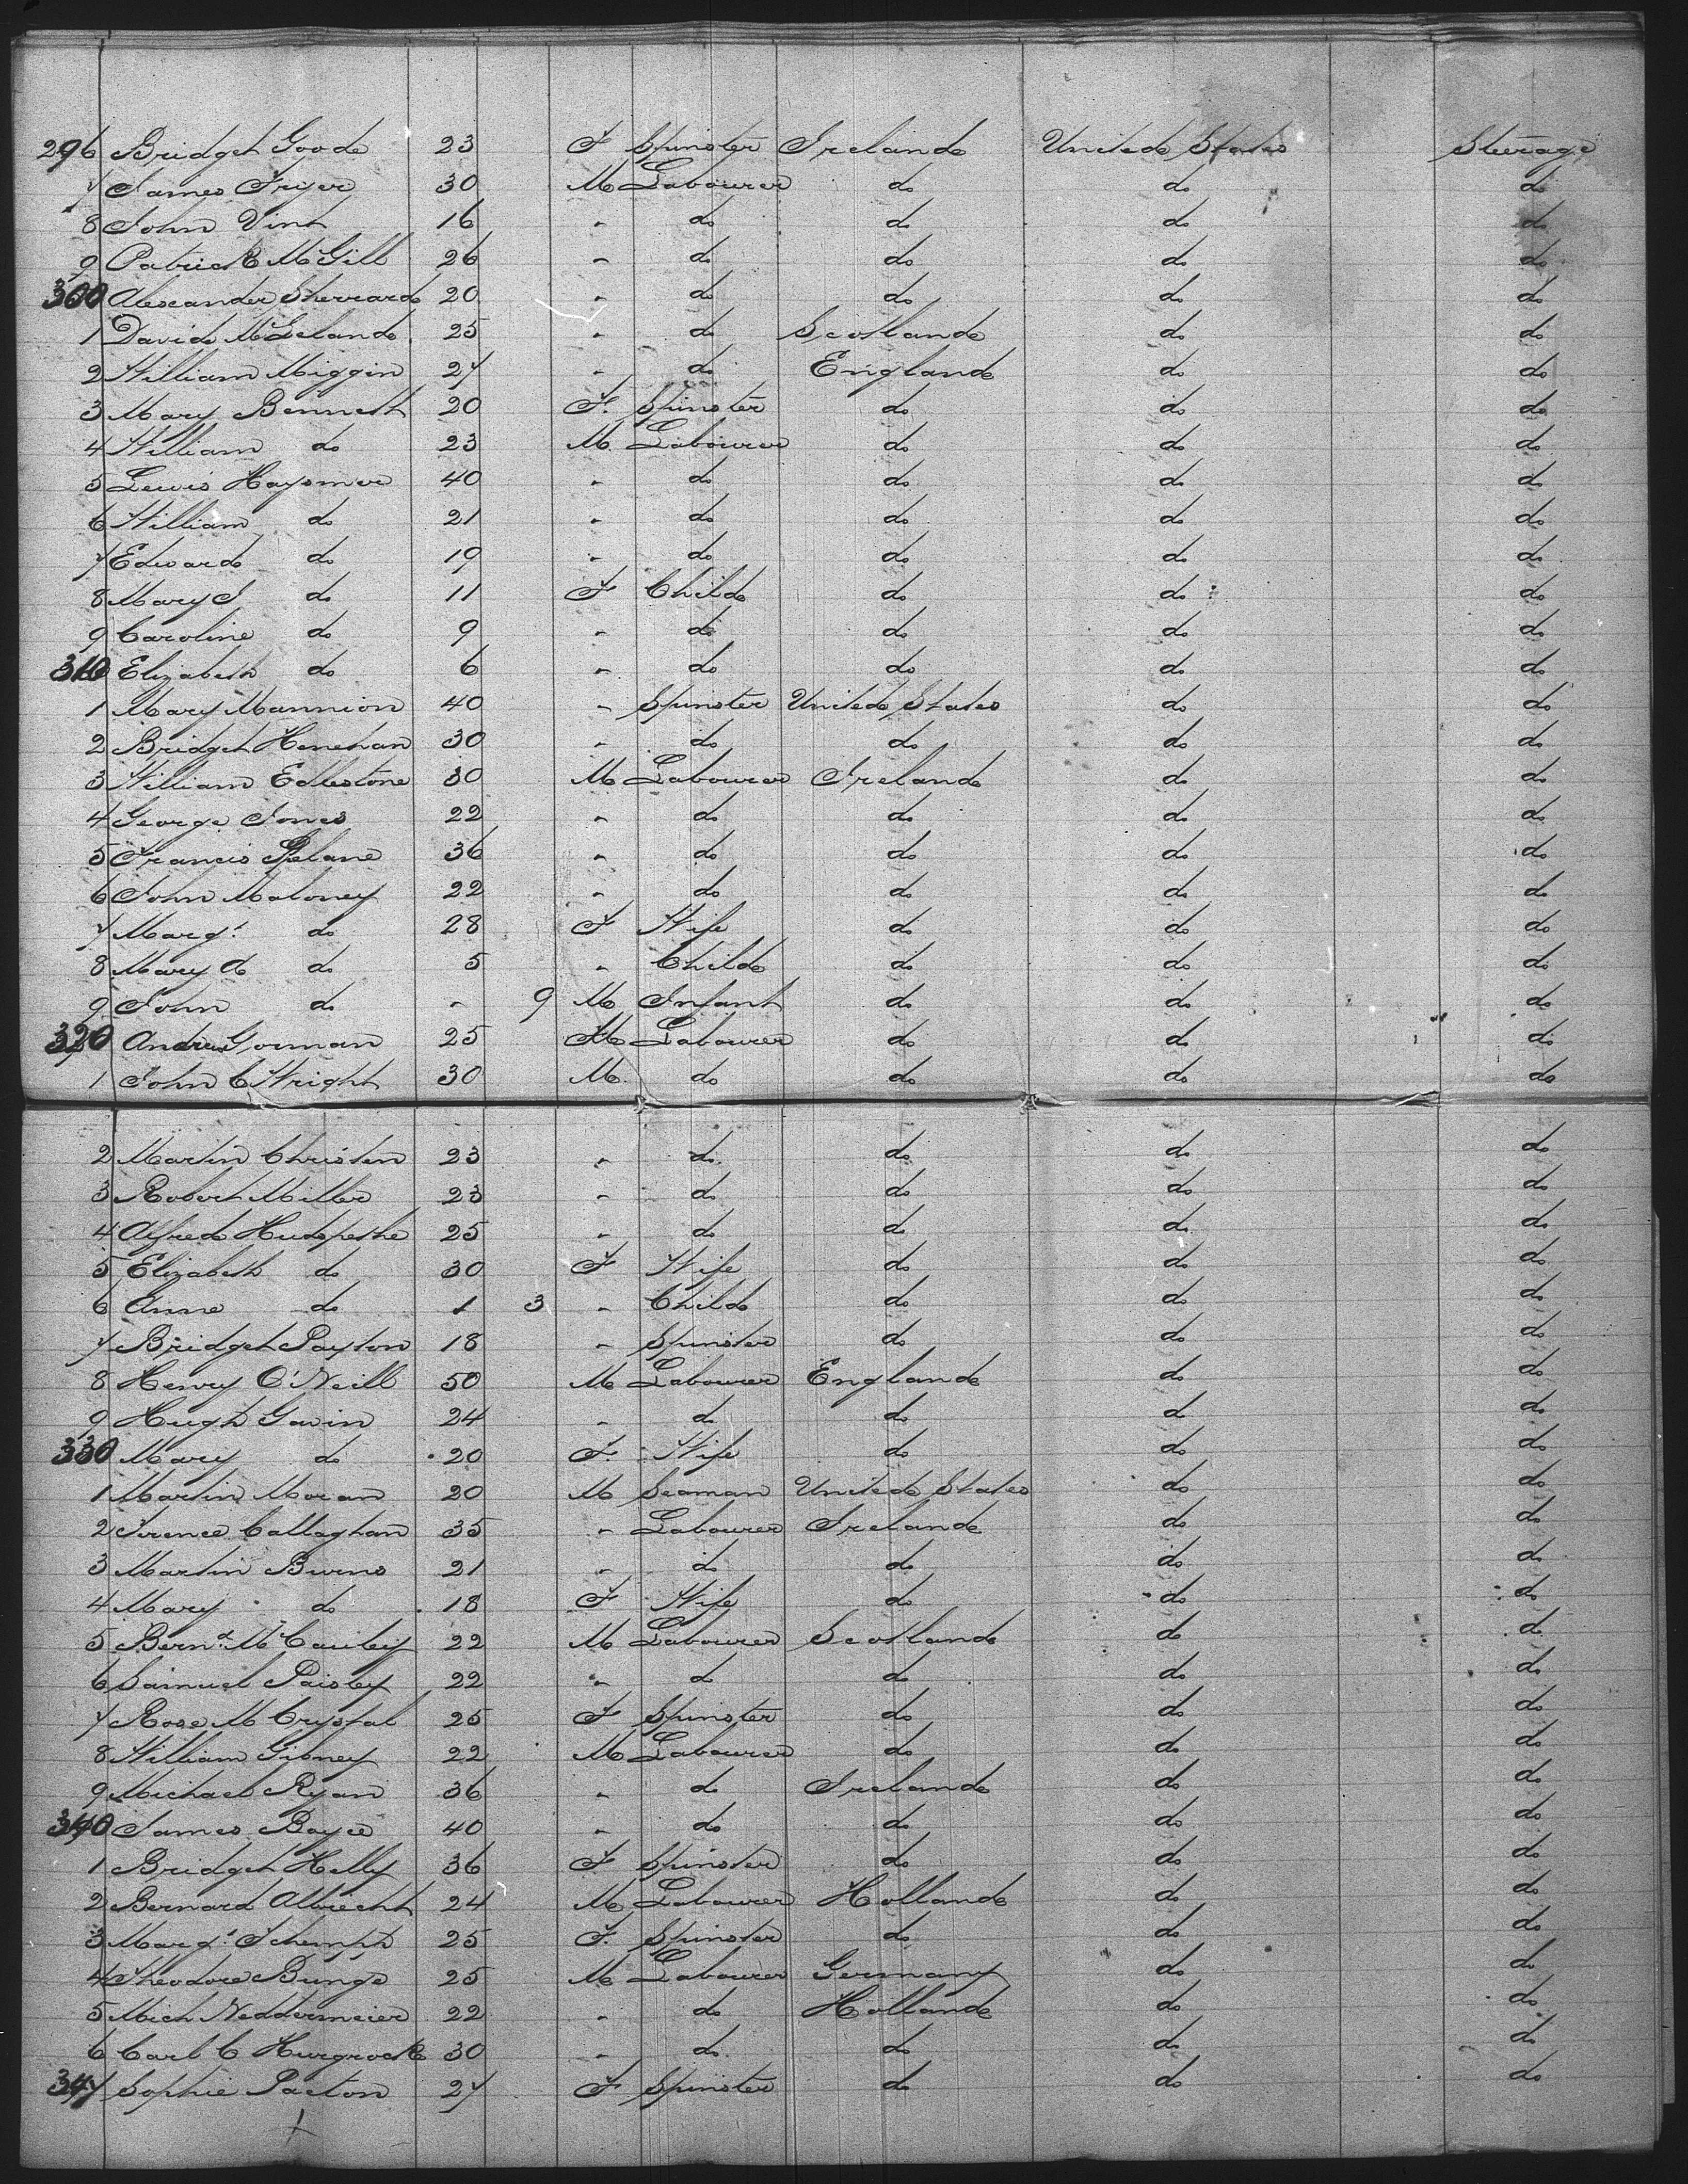 296 Bridget Goode 23 F Spinster Ireland United States Steerage
7 James Fryer 30 M Labourer do do do
8 John Vint 16 " do do do do
9 Patrick McGill 26 " do do do do
300 Alexander Sherrard 20 " do do do do
1 David McLeland 25 " do Scotland do do
2 William Miggin 27 " do England do do
3 Mary Bennett 20 F. Spinster do do do
4 William do 23 M Labourer do do do
5 Lewis Haysmer 40 " do do do do
6 William do 21 " do do do do
7 Edward do 19 " do do do do
8 Mary J do 11 F Child do do do
9 Caroline do 9 " do do do do
310 Elizabeth do 6 " do do do do
1 Mary Mannion 40 " Spinster United States do do
2 Bridget Henehan 30 " do do do do
3 William Edlestone 30 M Labourer Ireland do do
4 George Jones 22 " do do do do
5 Francis 36 " do do do do
6 John Maloney 22 " do do do do
7 Margt. do 28 F Wife do do do
8 Mary A do 5 " Child do do do
9 John do - 9 M Infant do do do
320 Andrew Gorman 25 M Labourer do do do
1 John C Wright 30 M. do do do do
2 Martin Christen 23 " do do do do
3 Robert Miller 23 " do do do do
4 Alfred 25 " do do do do
5 Elizabeth do 30 F Wife do do do
6 Anne do 1 3 " Child do do do
7 Bridget Payton 18 " Spinster do do do
8 Henry O'Neill 50 M Labourer England do do
9 Hugh Gavin 24 " do do do do
330 Mary do 20 F. Wife do do do
1 Martin Moran 20 M Seaman United States do do
2 Terence Callaghan 35 " Labourer Ireland do do
3 Martin Burns 21 " do do do do
4 Mary do 18 F Wife do do do
5 Bernd. McCauley 22 M Labourer Scotland do do
6 Samuel Paisley 22 " do do do do
7 Rose McCrystal 25 F Spinster do do do
8 William Gibney 22 M Labourer do do do
9 Michael Ryan 36 " do Ireland do do
340 James Boyce 40 " do do do do
1 Bridget Helly 36 F Spinster do do do
2 Bernard Albrecht 24 M Labourer Holland do do
3 Margt. Schempp 25 F. Spinster do do do
4 Theodore Bunge 25 M Labourer Germany do do
5 Mich Neddermeier 22 " do Holland do do
6 Carl C 30 " do do do do
347 Sophie Paeton 27 F Spinster do do do